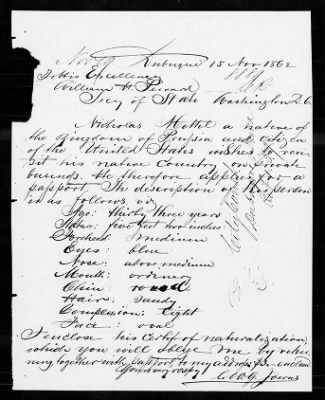 Dubuque 15 Nov 1862
To His Excellency
William H. Seward
Secy of State Washington D.C.
Nicholas a native of
the Kingdom of Prussia and citizen
of the United States wishes to revi-
sit his native Country on private
business. He therefore applies for a
passport. The description of his person
is as follows viz
Age: thirty three years
Stature: five feet two inches
Forehead: medium
Eyes: blue
Nose: above medium
Mouth: ordinary
Chin: round
Hair: sandy
Complexion: light
Face: oval
I enclose his Certif of naturalization,
which you will oblige me by retur-
ning together with passport to my address
Yours very resply